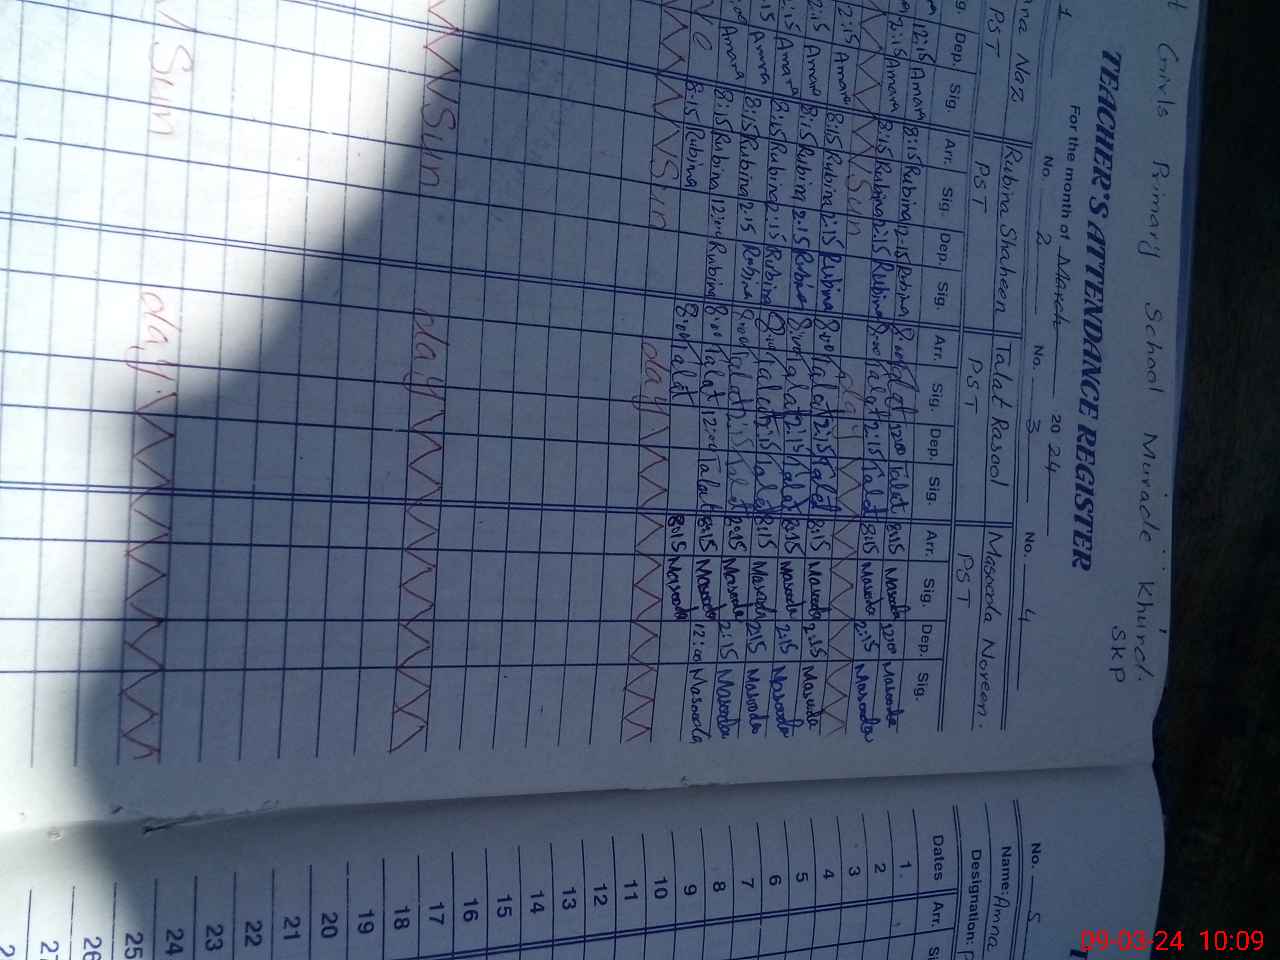 Girls Primary School Muride Khurd.
SKP
TEACHER'S ATTENDANCE REGISTER
For the month of March 20 24
1 No. 2 No. 3 No. 4
Naz Rubina Shaheen Talat Rasool Masooda Noreen.
PST PST PST PST
Dep. Sig. Arr. Sig. Dep. Sig. Arr. Sig. Dep. Sig. Arr. Sig. Dep. Sig.
12:15 Amara 8:15 Rubina 12:15 Rubina 8:00 Talat 12:00 Talat 8:15 Masooda 12:00 Masooda
2:15 Amara 8:15 Rubina 2:15 Rubina 8:00 Talat 2:15 Talat 8:15 Masooda 2:15 Masooda
Sun day
2:15 Amara 8:15 Rubina 2:15 Rubina 8:00 Talat 2:15 Talat 8:15 Masooda 2:15 Masooda
2:15 Amara 8:15 Rubina 2:15 Rubina 8:00 Talat 2:15 Talat 8:15 Masooda 2:15 Masooda
2:15 Amara 8:15 Rubina 2:15 Rubina 8:00 Talat 2:15 Talat 8:15 Masooda 2:15 Masooda
2:15 Amara 8:15 Rubina 2:15 Rubina 8:00 Talat 2:15 Talat 8:15 Masooda 2:15 Masooda
Amara 8:15 Rubina 12:00 Rubina 8:00 Talat 12:00 Talat 8:15 Masooda 12:00 Masooda
8:15 Rubina 8:00 Talat 8:15 Masooda
Sun day
Sun day
Sun day.
No. 5
Name: Amna
Designation:
Dates Arr.
1.
2
3
4
5
6
7
8
9
10
11
12
13
14
15
16
17
18
19
20
21
22
23
24
25
26
09-03-24 10:09